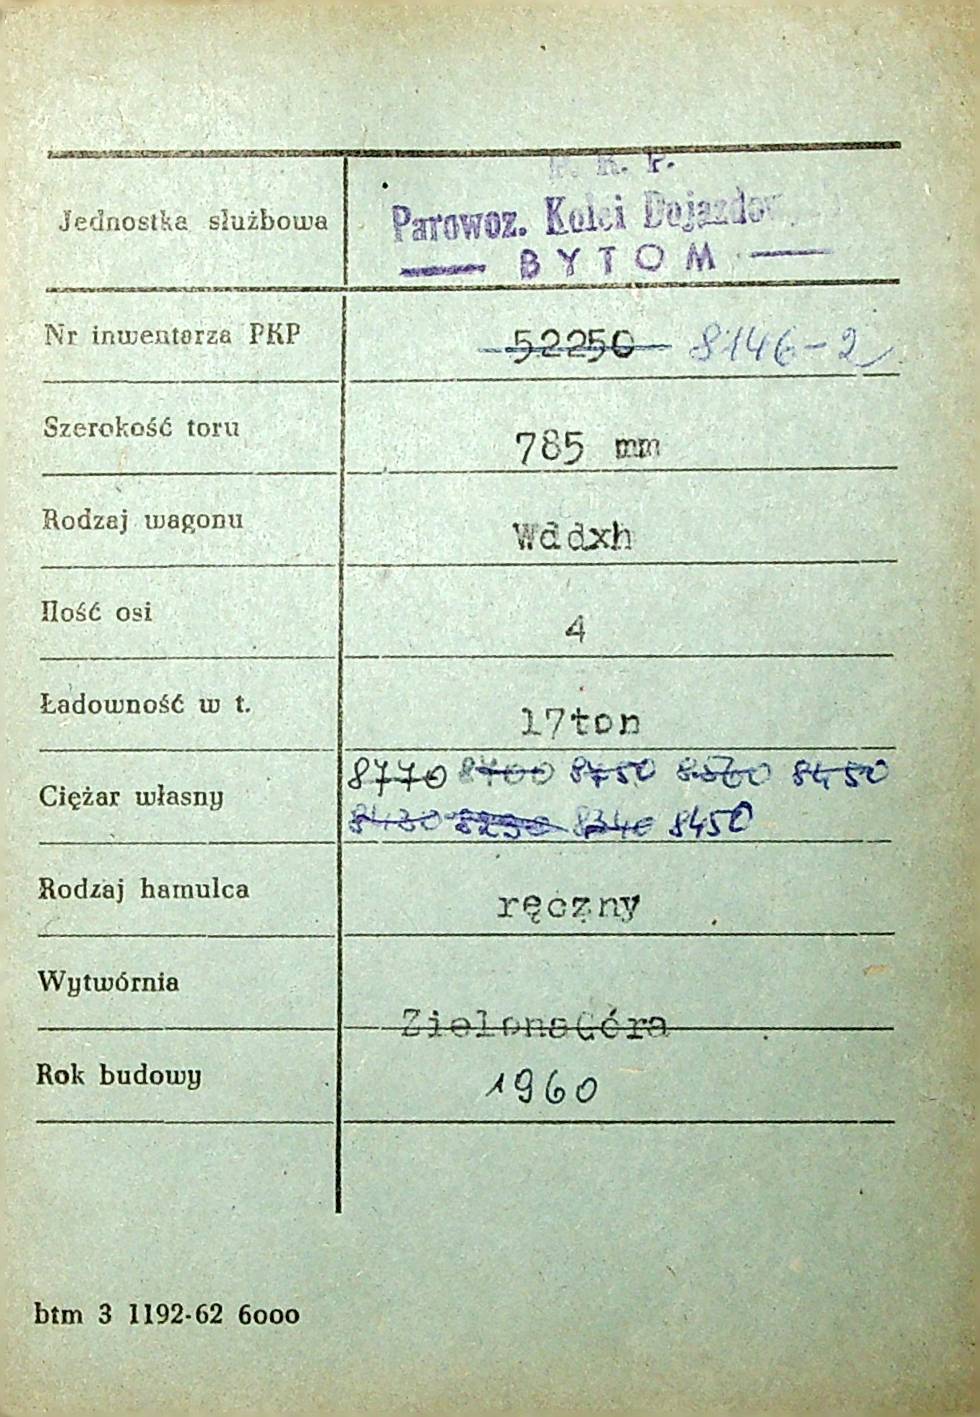 P. K. P.
Jednostka służbowa Parowoz. Kolei Dojazdow
— BYTOM —
Nr inwentarza PKP 52250 8146-2
Szerokość toru 785 mm
Rodzaj wagonu Wddxh
Ilość osi 4
Ładowność w t. 17ton
8770 8700 8750 8450
Ciężar własny
8430 8340 8450
Rodzaj hamulca ręczny
Wytwórnia
ZielonaGóra
Rok budowy 1960
btm 3 1192-62 6000